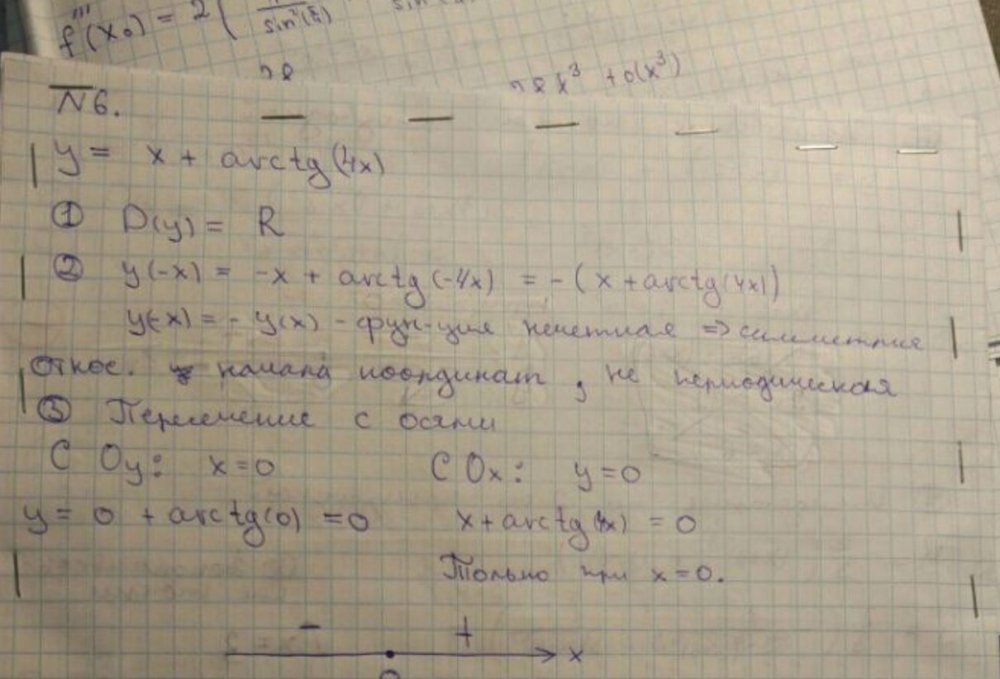 f'''(x₀) = 2 (
sin²(
x³ + o(x³)
N6.
y = x + arctg(4x)
① D(y) = R
② y(-x) = -x + arctg(-4x) = -(x + arctg(4x))
y(-x) = - y(x) - фун-ция нечетная => симметрия
относ. начала координат, не периодическая
③ Пересечение с осями
С Oy: x=0 С Ox: y=0
y = 0 + arctg(0) = 0 x + arctg(4x) = 0
Только при x=0.
- +
x
0